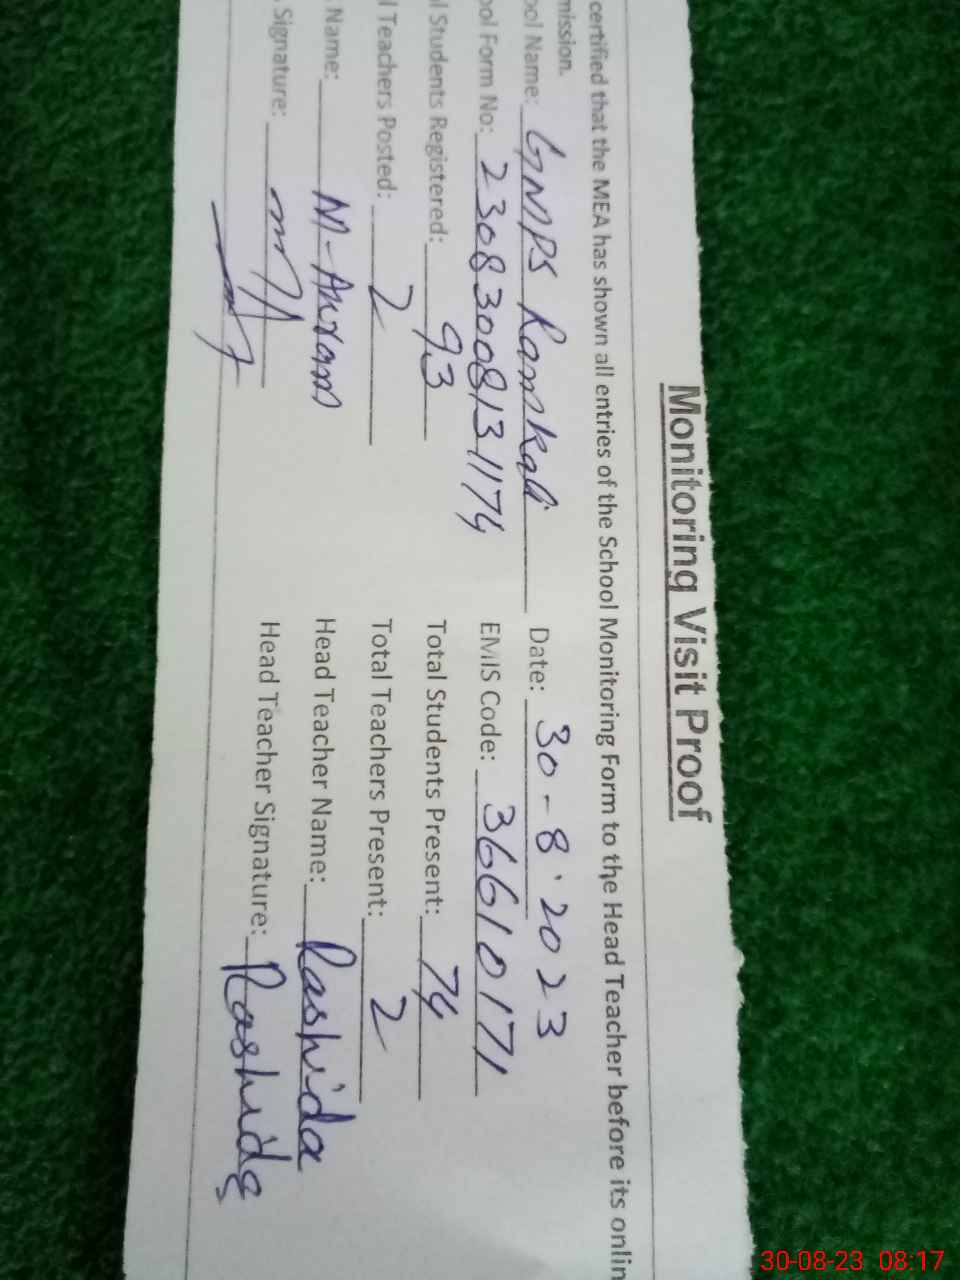 Monitoring Visit Proof
certified that the MEA has shown all entries of the School Monitoring Form to the Head Teacher before its onlin
mission.
ool Name: GMPS Ramkali Date: 30-8-2023
ool Form No: 23083008131174 EMIS Code: 36610171
l Students Registered: 93 Total Students Present: 74
l Teachers Posted: 2 Total Teachers Present: 2
Name: M-Akram Head Teacher Name: Rashida
Signature: Head Teacher Signature: Rashida
30-08-23 08:17